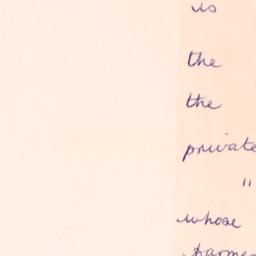 is
the
the
private
"
whose